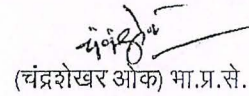 (चंद्रशेखर ओक) भा.प्र.से.